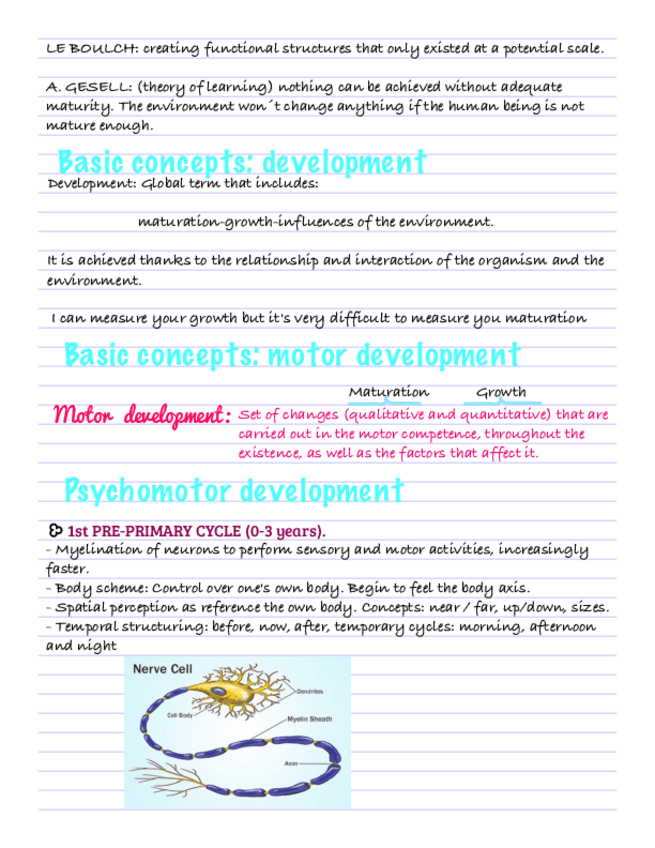 LE BOULCH: creating functional structures that only existed at a potential scale.
A. GESELL: (theory of learning) nothing can be achieved without adequate
maturity. The environment won´t change anything if the human being is not
mature enough.
Basic concepts: development
Development: Global term that includes:
maturation-growth-influences of the environment.
It is achieved thanks to the relationship and interaction of the organism and the
environment.
I can measure your growth but it's very difficult to measure you maturation
Basic concepts: motor development
Maturation Growth
Motor development: Set of changes (qualitative and quantitative) that are
carried out in the motor competence, throughout the
existence, as well as the factors that affect it.
Psychomotor development
1st PRE-PRIMARY CYCLE (0-3 years).
- Myelination of neurons to perform sensory and motor activities, increasingly
faster.
- Body scheme: Control over one's own body. Begin to feel the body axis.
- Spatial perception as reference the own body. Concepts: near / far, up/down, sizes.
- Temporal structuring: before, now, after, temporary cycles: morning, afternoon
and night
Nerve Cell
Dendrites
Cell Body
Myelin Sheath
Axon